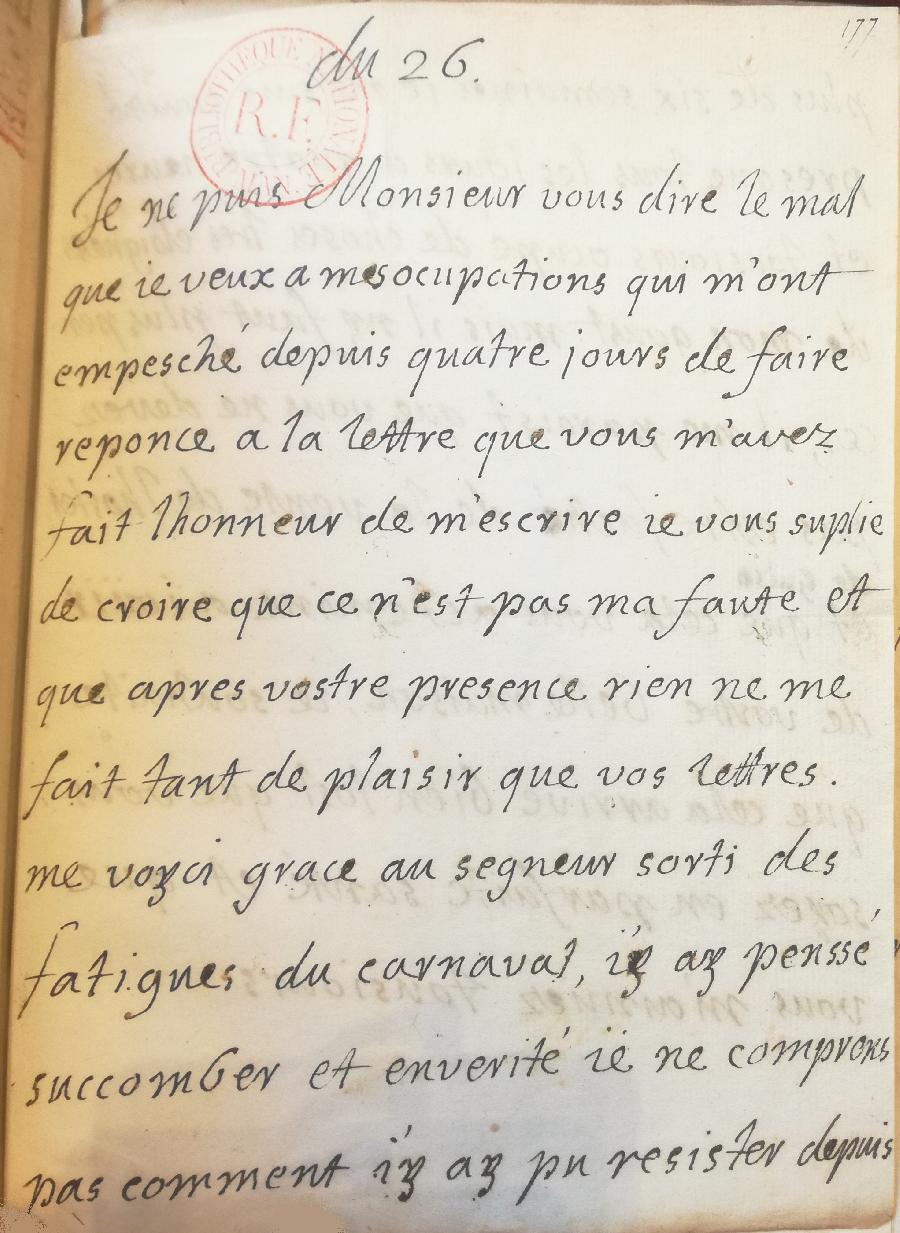 177
du 26.
BIBLIOTHEQUE NATIONALE
R.F.
Je ne puis Monsieur vous dire le mal
que ie veux a mesocupations qui m'ont
empesché depuis quatre jours de faire
reponce a la lettre que vous m'avez
fait lhonneur de m'escrire ie vous suplie
de croire que ce n'est pas ma faute et
que apres vostre presence rien ne me
fait tant de plaisir que vos lettres.
me voyci grace au segneur sorti des
fatigues du carnaval, i'y ay penssé
succomber et enverité ie ne comprens
pas comment i'y ay pu resister depuis